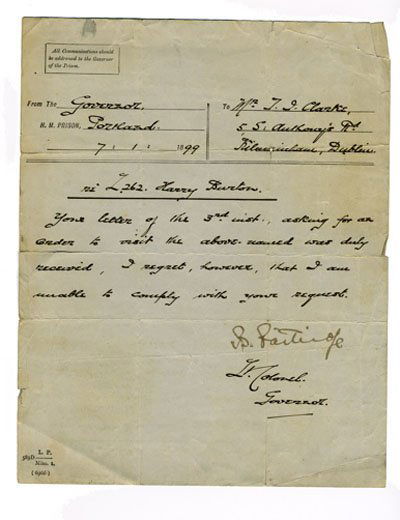 All Communications should
be addressed to the Governor
of the Prison.
From The Governor,
H. M. PRISON, Portland.
7 . 1 . 1899
To Mr T. J. Clarke,
5 St. Anthony's Rd
Kilmainham, Dublin.
re L.262. Harry Burton.
Your letter of the 3rd inst., asking for an
order to visit the above-named was duly
received, I regret, however, that I am
unable to comply with your request.
Lt. Colonel.
Governor.
L. P.
(6966)